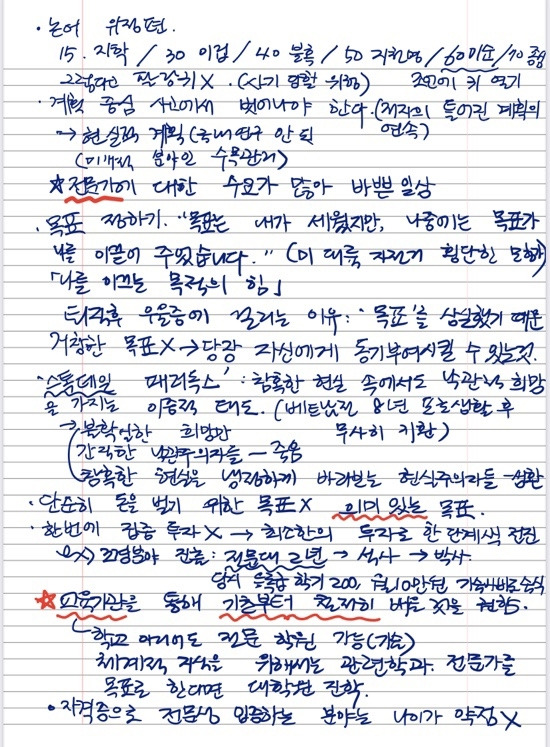 · 논어 위정편.
15. 지학 / 30 이립 / 40 불혹 / 50 지천명 / 60 이순 / 70 종심
그렇다고 X. (사기 당할 위험)
· 계획 중심 사고에서 벗어나야 한다. (저자의 틀어진 계획의 연속)
→ 현실적 계획 (국내연구 안 된
(미개척 분야인 수목관리)
☆ 전문가에 대한 수요가 많아 바쁜 일상
· 목표 정하기. "목표는 내가 세웠지만, 나중에는 목표가
나를 이끌어 주었습니다." (미 대륙 자전거 횡단한
「나를 이끄는 목적의 힘」
퇴직후 우울증에 걸리는 이유: '목표'를 상실했기 때문
거창한 목표X → 당장 자신에게 동기부여시킬 수 있는 것.
'스톡데일 패러독스' : 참혹한 현실 속에서도 낙관적 희망
을 가지는 이중적 태도. (베트남전 8년 포로생활 후
무사히 귀환)
→ 불확실한 희망만
간직한 낙관주의자들 — 죽음
참혹한 현실을 냉정하게 바라보는 현실주의자들 - 생환
· 단순히 돈을 벌기 위한 목표 X 의미 있는 목표.
· 한번에 집중 투자 X → 최소한의 투자로 한 단계씩 전진
예) 조경분야 진출 : 전문대 2년 → 석사 → 박사.
당시 등록금 학기 200, 월 10만원 기숙사비로 숙식
☆ 교육기관을 통해 기초부터 철저히 배운 것을 현장.
학교 아니어도 전문 학원 가능 (기술)
체계적 지식을 위해서는 관련학과. 전문가를
목표로 한다면 대학원 진학.
· 자격증으로 전문성 입증하는 분야는 나이가 약점 X